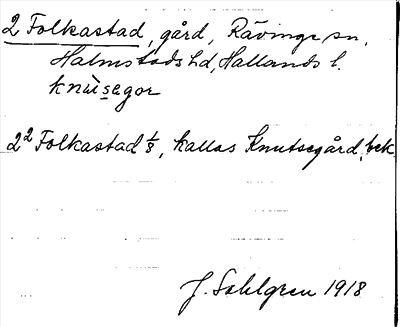 2 Folkastad, gård, Rävinge sn,
Halmstads hd, Hallands l.
knùsagor
2² Folkastad ⅛, kallas Knutsegård, bek.
J. Sahlgren 1918